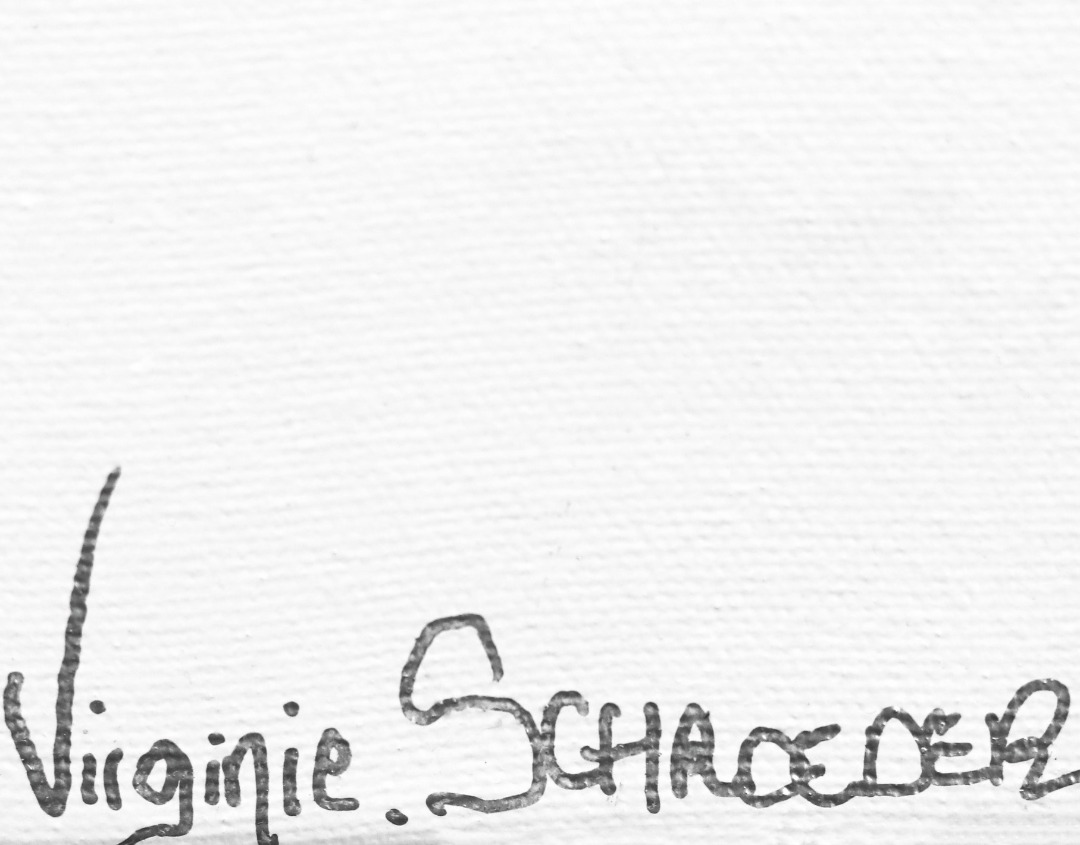 Virginie. SCHROEDER